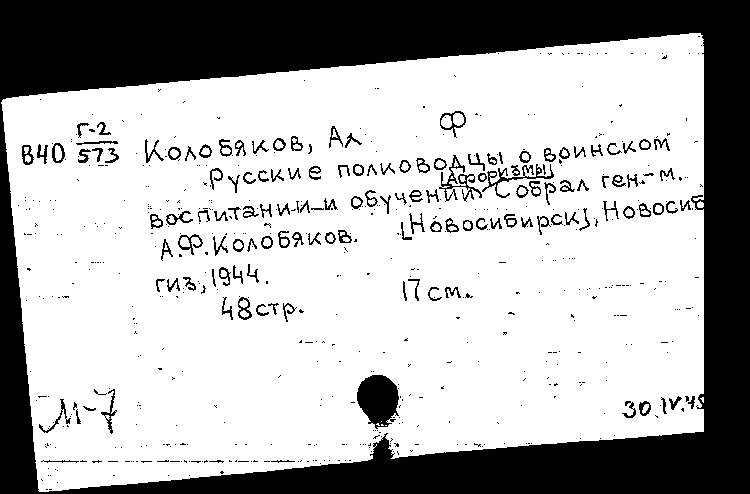 Г-2
В40 573 Колобяков, Ал Ф
Русские полководцы о воинском
[Афоризмы]
воспитании и обучении. Собрал ген.-м.
А.Ф.Колобяков. [Новосибирск], Новосиб
гиз, 1944.
48 стр. 17 см.
М-7
30.IV.45